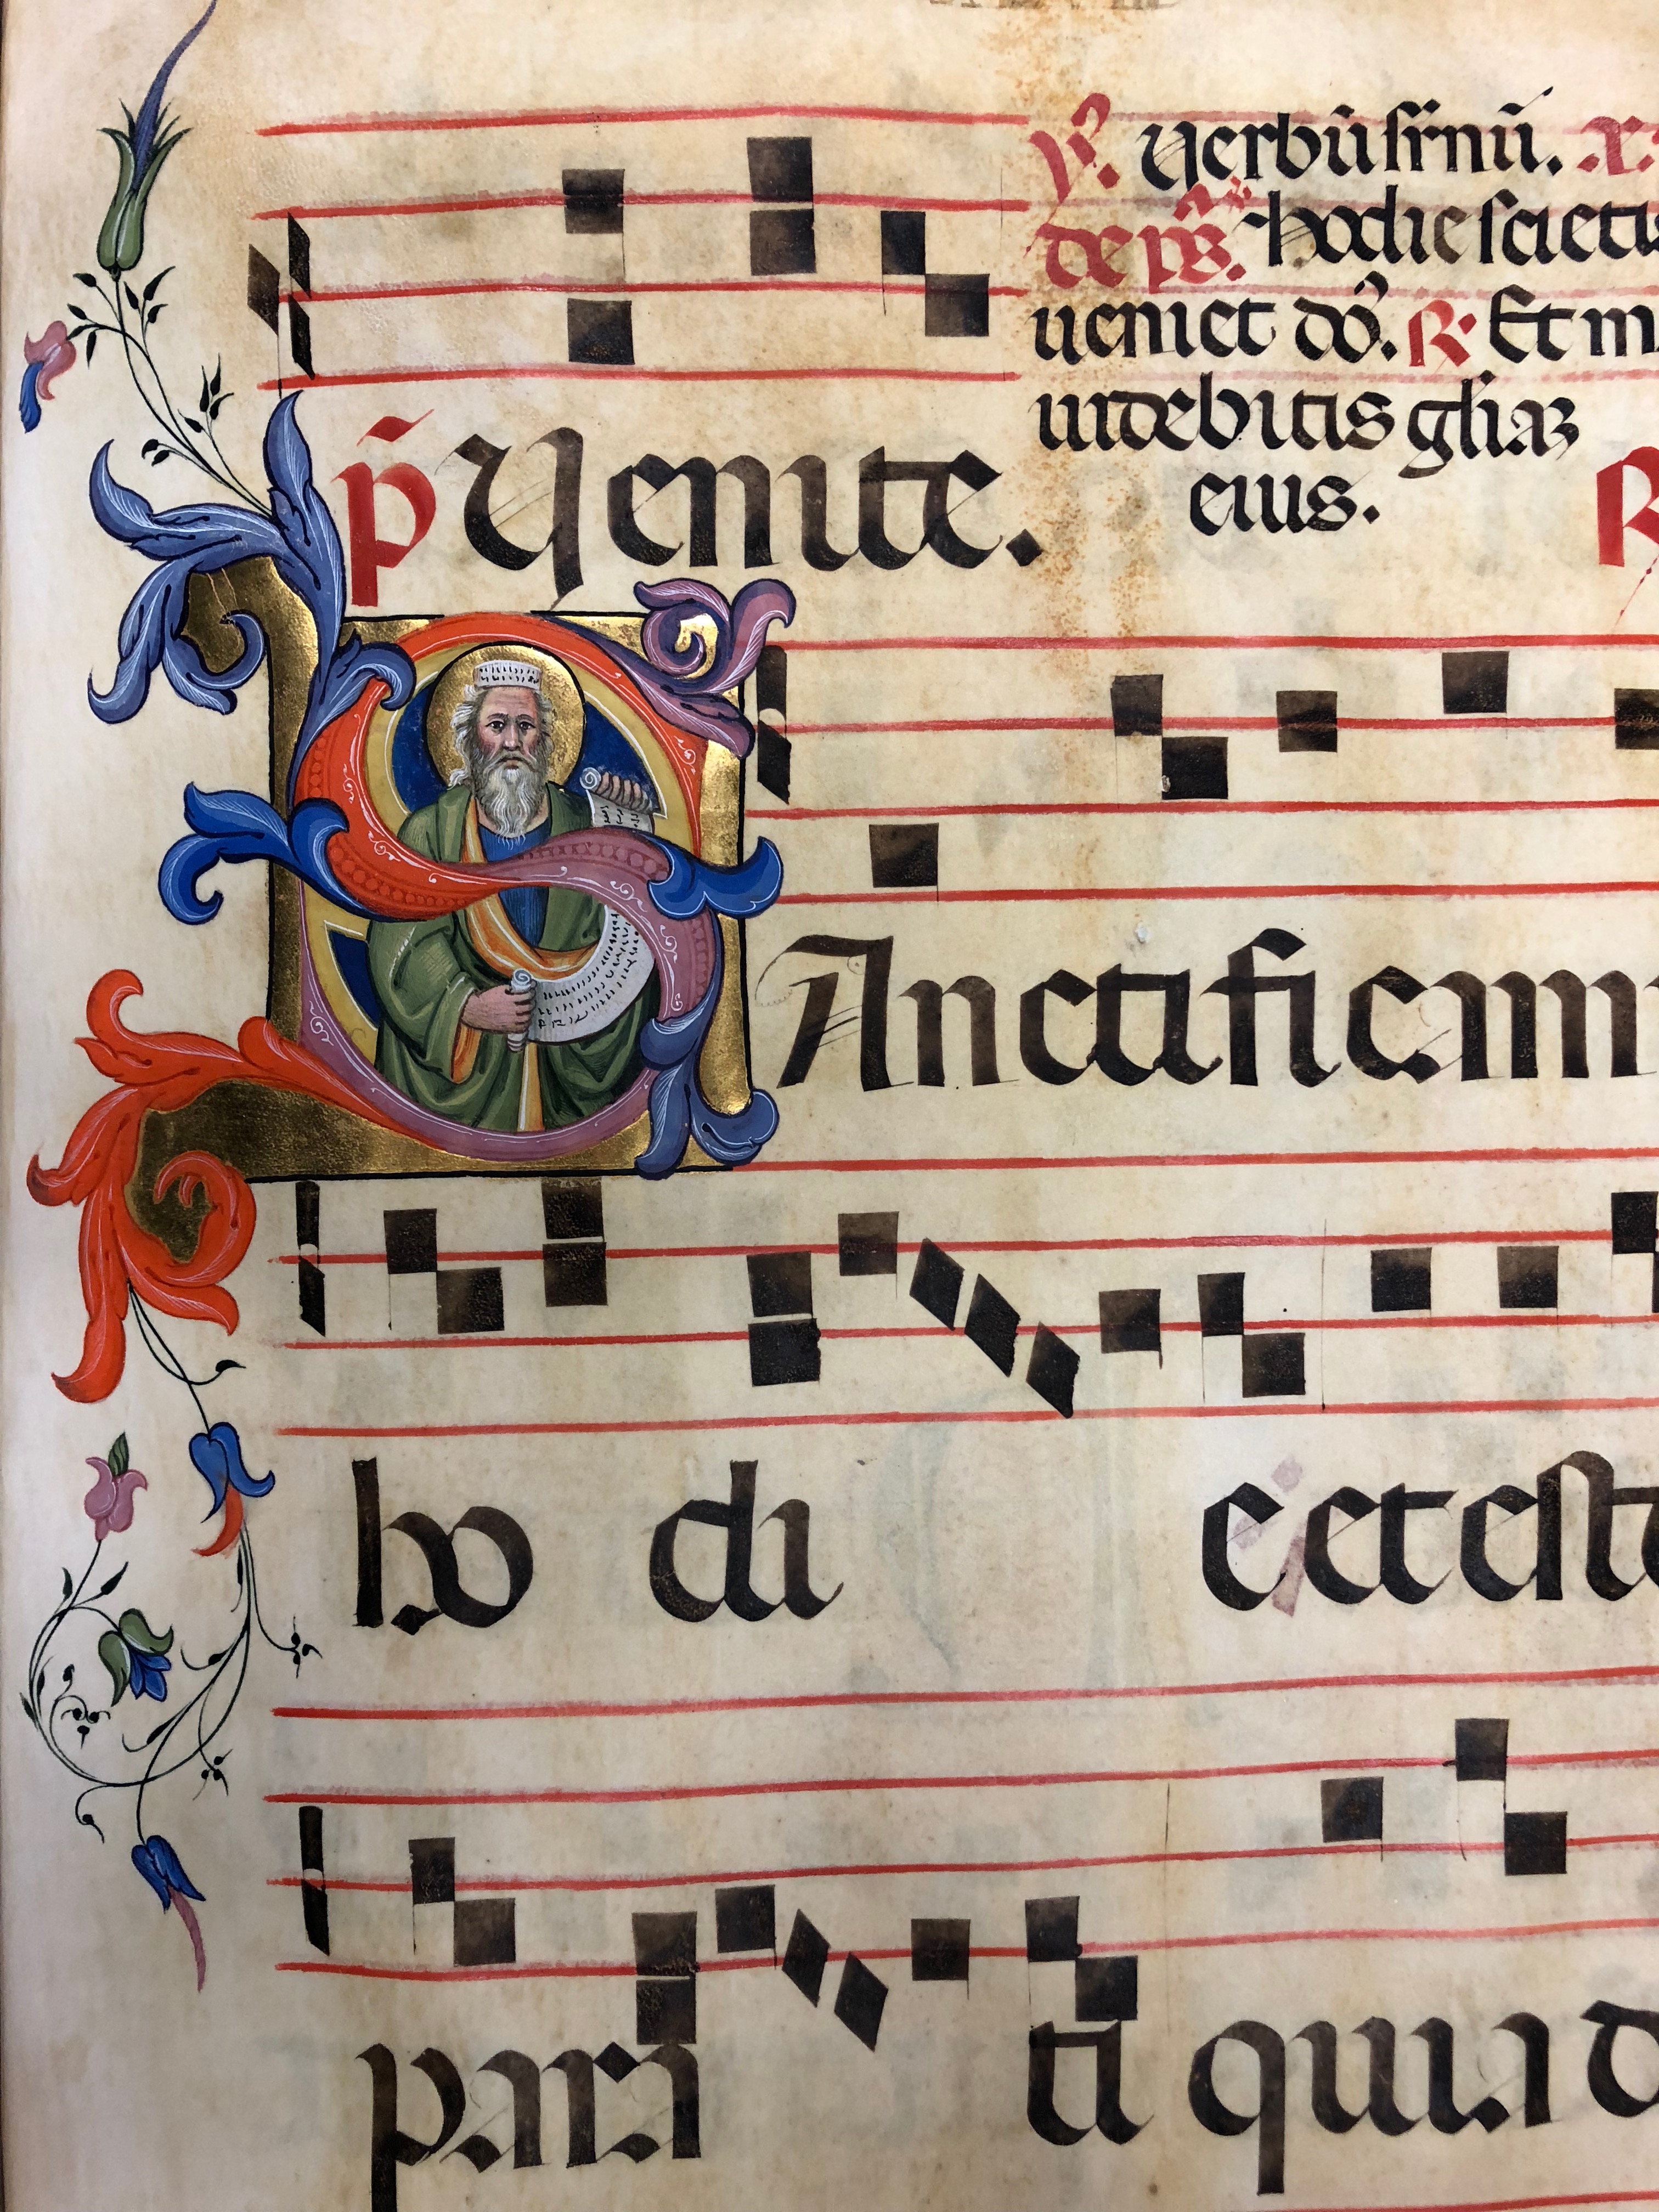 ℣. Verbū srnū. x:
de ps̄. hodie scietis
ueniet dō. ℟. Et m
uidebitis gliaꝝ
eius. R
p̄ Venite.
SAnctificami
ho di e et esto
para ti quia d